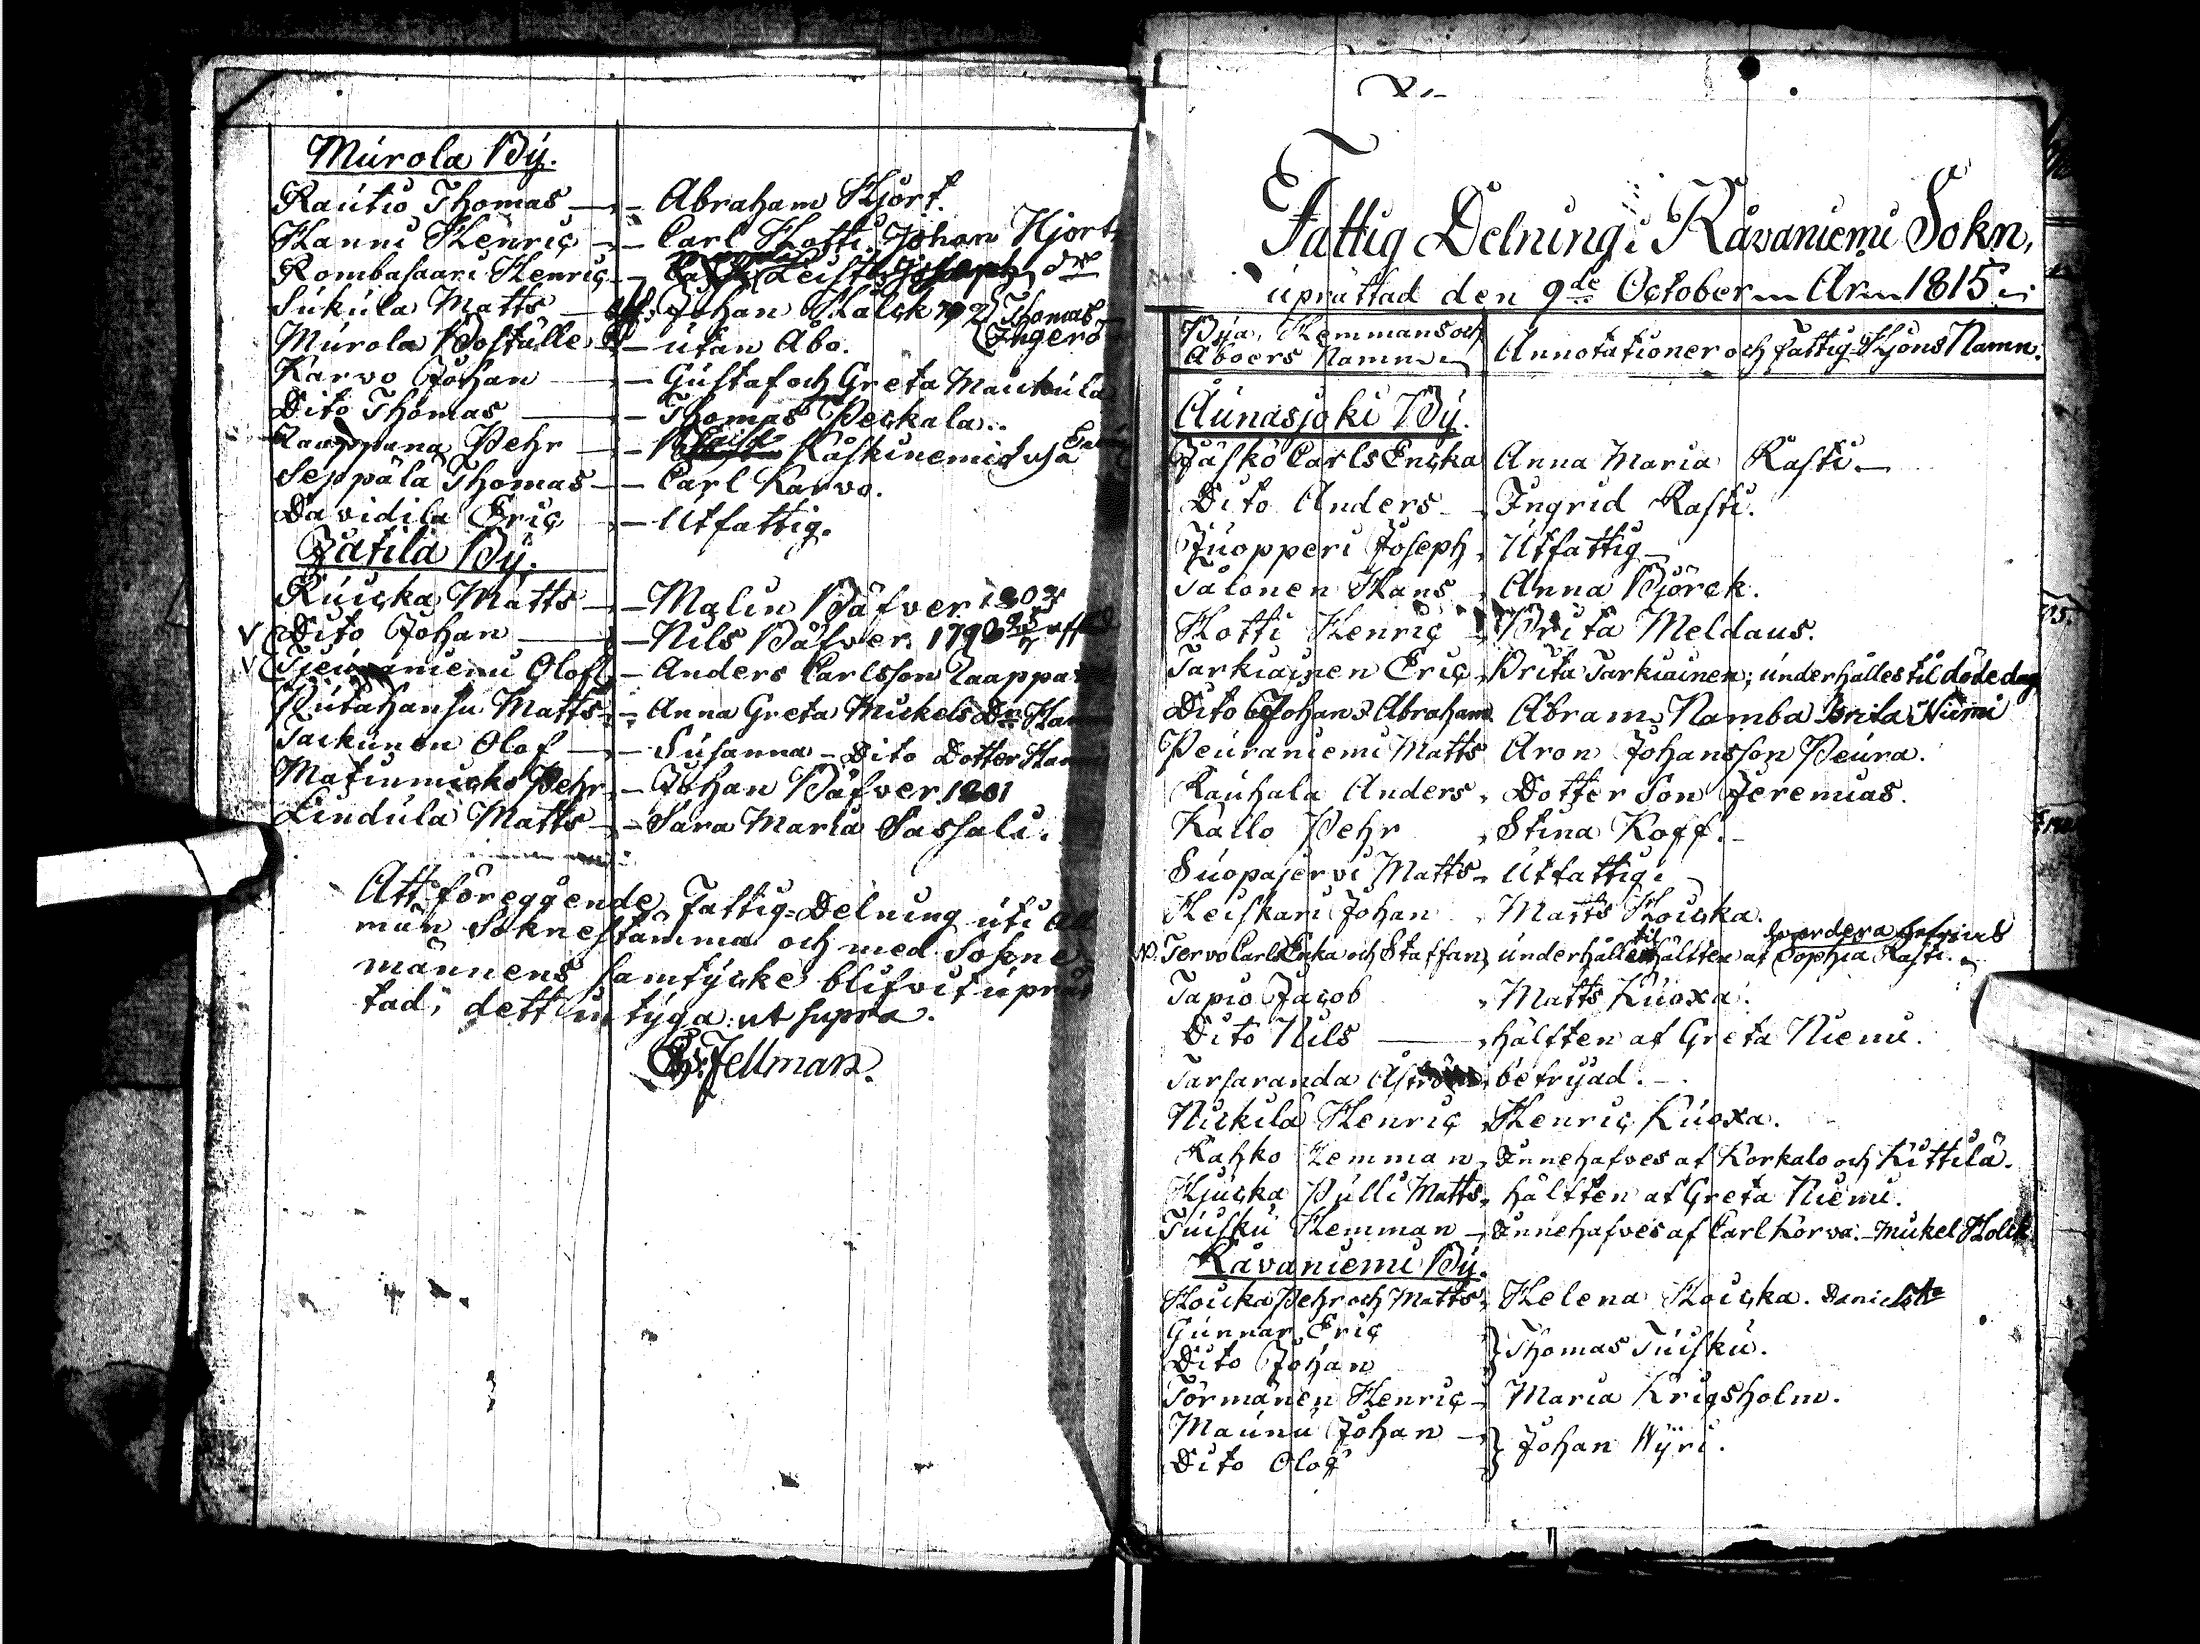 Murola Bÿ.
Rautio Thomas — Abraham Hjort.
Hanni Henric — Carl Hotti. Johan Hjort
Rombasaari Henric —
Sukula Matts — Johan Halck 792 Thomas
Murola Boställe — utan Åbo. Ingerö
Karvo Johan — Gustaf och Greta Mautula
Dito Thomas — Thomas Peckala.
Pehr — Kaiss Raskinemis
Seppälä Thomas — Carl Karvo.
Davidila Eric — Utfattig.
Jatila Bÿ.
Ruicka Matts — Malin Bäfver
V Dito Johan — Nils Bäfver
V Olof — Anders Carlsson Laappa
Putahansu Matts — Anna Greta Mickels Dr
Olof — Susanna — Dito Dotter
Matinmicko Pehr — Johan Bäfver 1801
Lindula Matts — Sara Maria Sassali.
Att föreggende Fattig-Delning uti all
män Sokne stämma och med Sokne
männens samtÿcke blifvit uprät
tad; dett intÿga ut supra.
Fellman.
Fattig Delning i Råvaniemi Sokn,
uprättad den 9de October År 1815
Bÿa, Hemmans och
Åboers Namn
Annotationer och Fattig-Hjons Namn.
Aunasjoki Bÿ.
Jäskö Carls Ericka Anna Maria Rasti —
Dito Anders Ingrid Rasti.
Juopperi Joseph Utfattig
Salonen Hans Anna Björck.
Hotti Henric Brita Meldaus.
Tarkiainen Eric Brita Tarkiainen; underhålles til döde dag
Dito Johan & Abraham Abram Namba Brita Niemi
Peuraniemi Matts Aron Johansson Peura.
Rauhala Anders Dotter Son Jeremias.
Kallo Pehr Stina Koff.
Suopajervi Matts Utfattig
Heiskari Johan Matts Hoicka.
Tervo Carls Ericka och Staffan underhåller til hälften af Sophia Rasti.
Tapio Jacob Matts Kuoxa.
Dito Nils — hälften af Greta Niemi.
Tarsaranda Åström befrÿad.
Nickilä Henric Henric Kuoxa.
Rahko Hemman Innehafves af Korkalo och Kittilä.
Hjucka Pulli Matts hälften af Greta Niemi.
Tuisku Hemman Innehafves af Carl Korva. — Mickel Holck
Råvaniemi Bÿ.
Hoicka Pehr och Matts Helena Hoicka.
Gunnar Eric
Dito Johan } Thomas Tuisku.
Törmänen Henric Maria Krigsholm.
Maunu Johan
Dito Olof } Johan Wÿri.